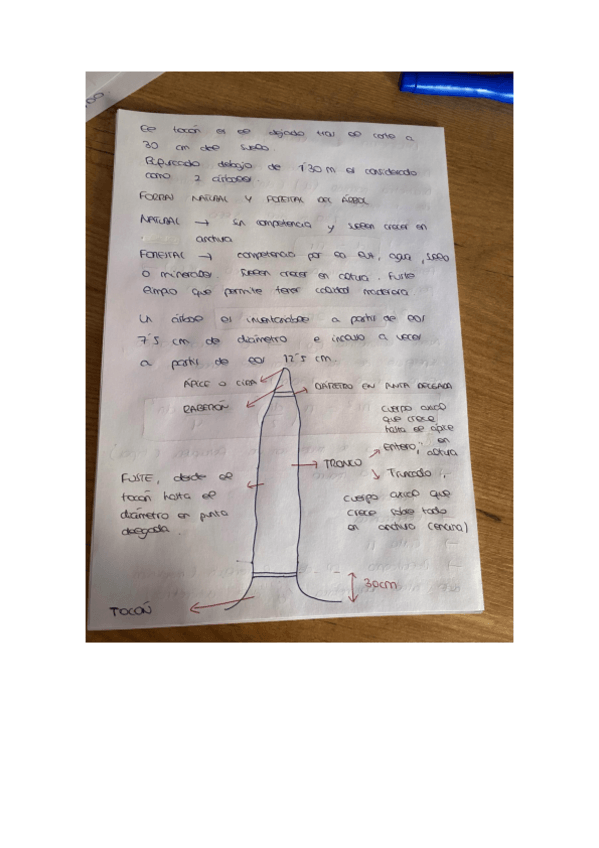 El tocón es el dejado tras el corte a
30 cm del suelo.
Bifurcado debajo de 1'30 m es considerado
como 2 árboles.
FORMA NATURAL Y FORESTAL DEL ÁRBOL
NATURAL → sin competencia y suelen crecer en
anchura
FORESTAL → competencia por la luz, agua, suelo
o minerales. Suelen crecer en altura. Fuste
limpio que permite tener calidad maderera
Un árbol es inventariable a partir de los
7'5 cm de diámetro e incluso a veces
a partir de los 12'5 cm.
ÁPICE O CIMA
DIÁMETRO EN PUNTA DELGADA
RABERÓN
CUERPO ÚNICO
que crece
hasta el ápice
en
altura
Entero:
TRONCO
Truncado:
cuerpo único que
crece sobre todo
en anchura (encina)
FUSTE, desde el
tocón hasta el
diámetro en punta
delgada.
30cm
TOCÓN